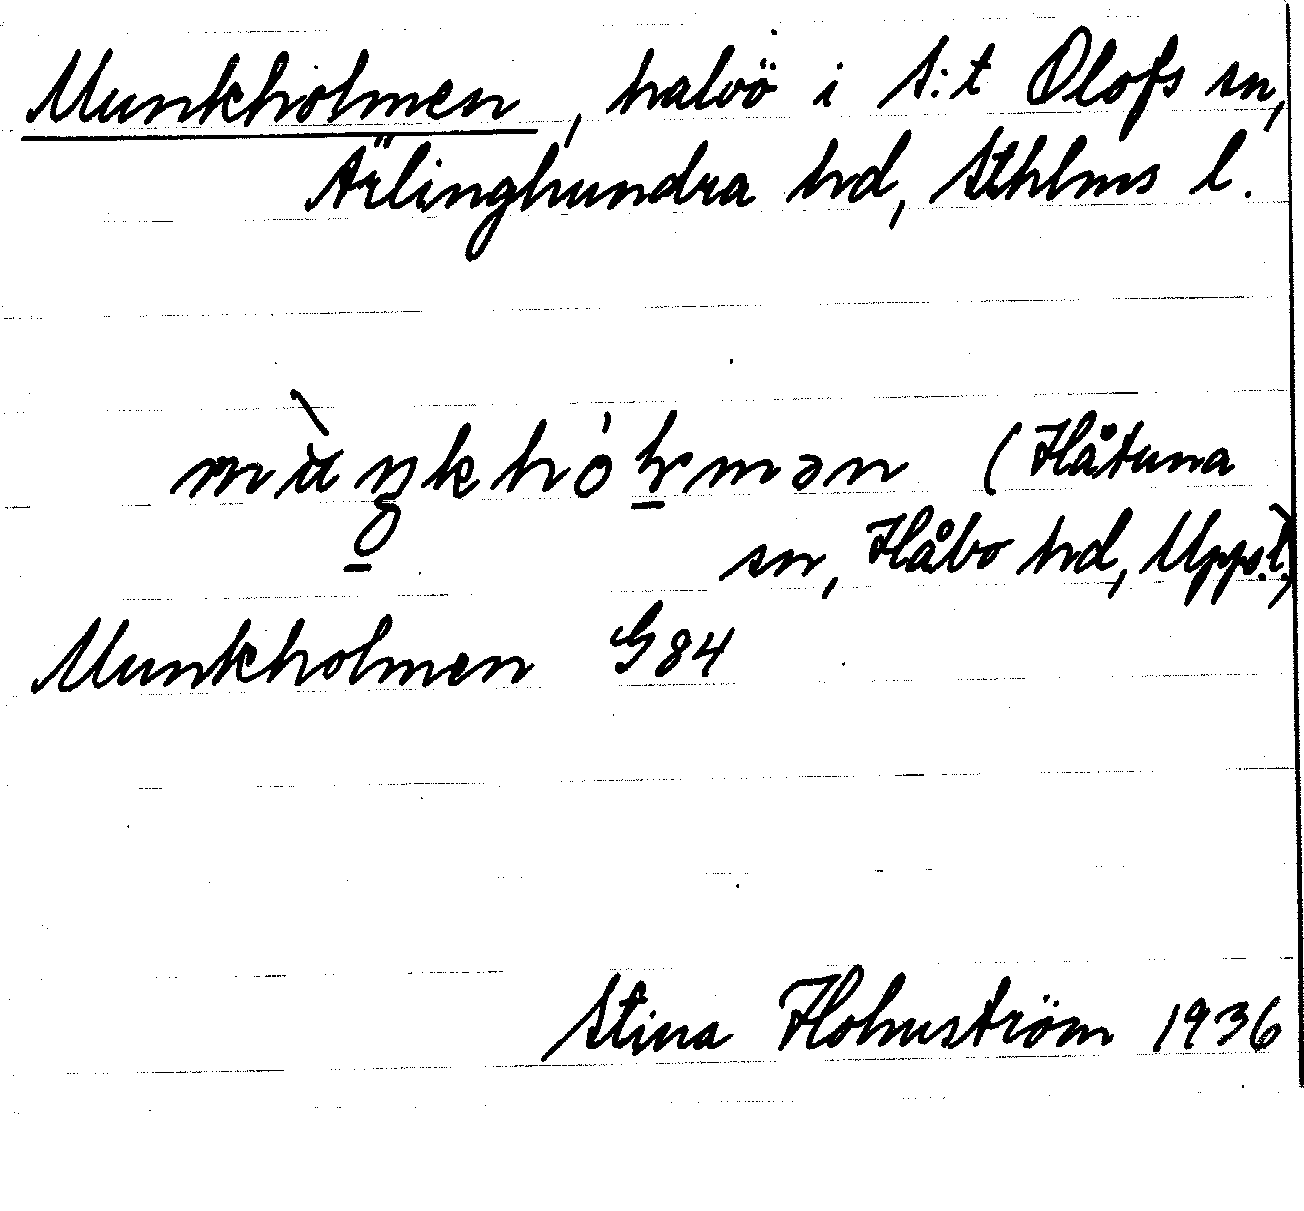 Munkholmen, halvö i S:t Olofs sn,
Ärlinghundra hd, Sthlms l.
(Håtuna
sn, Håbo hd, Upps. l.)
Munkholmen G 84
Stina Holmström 1936